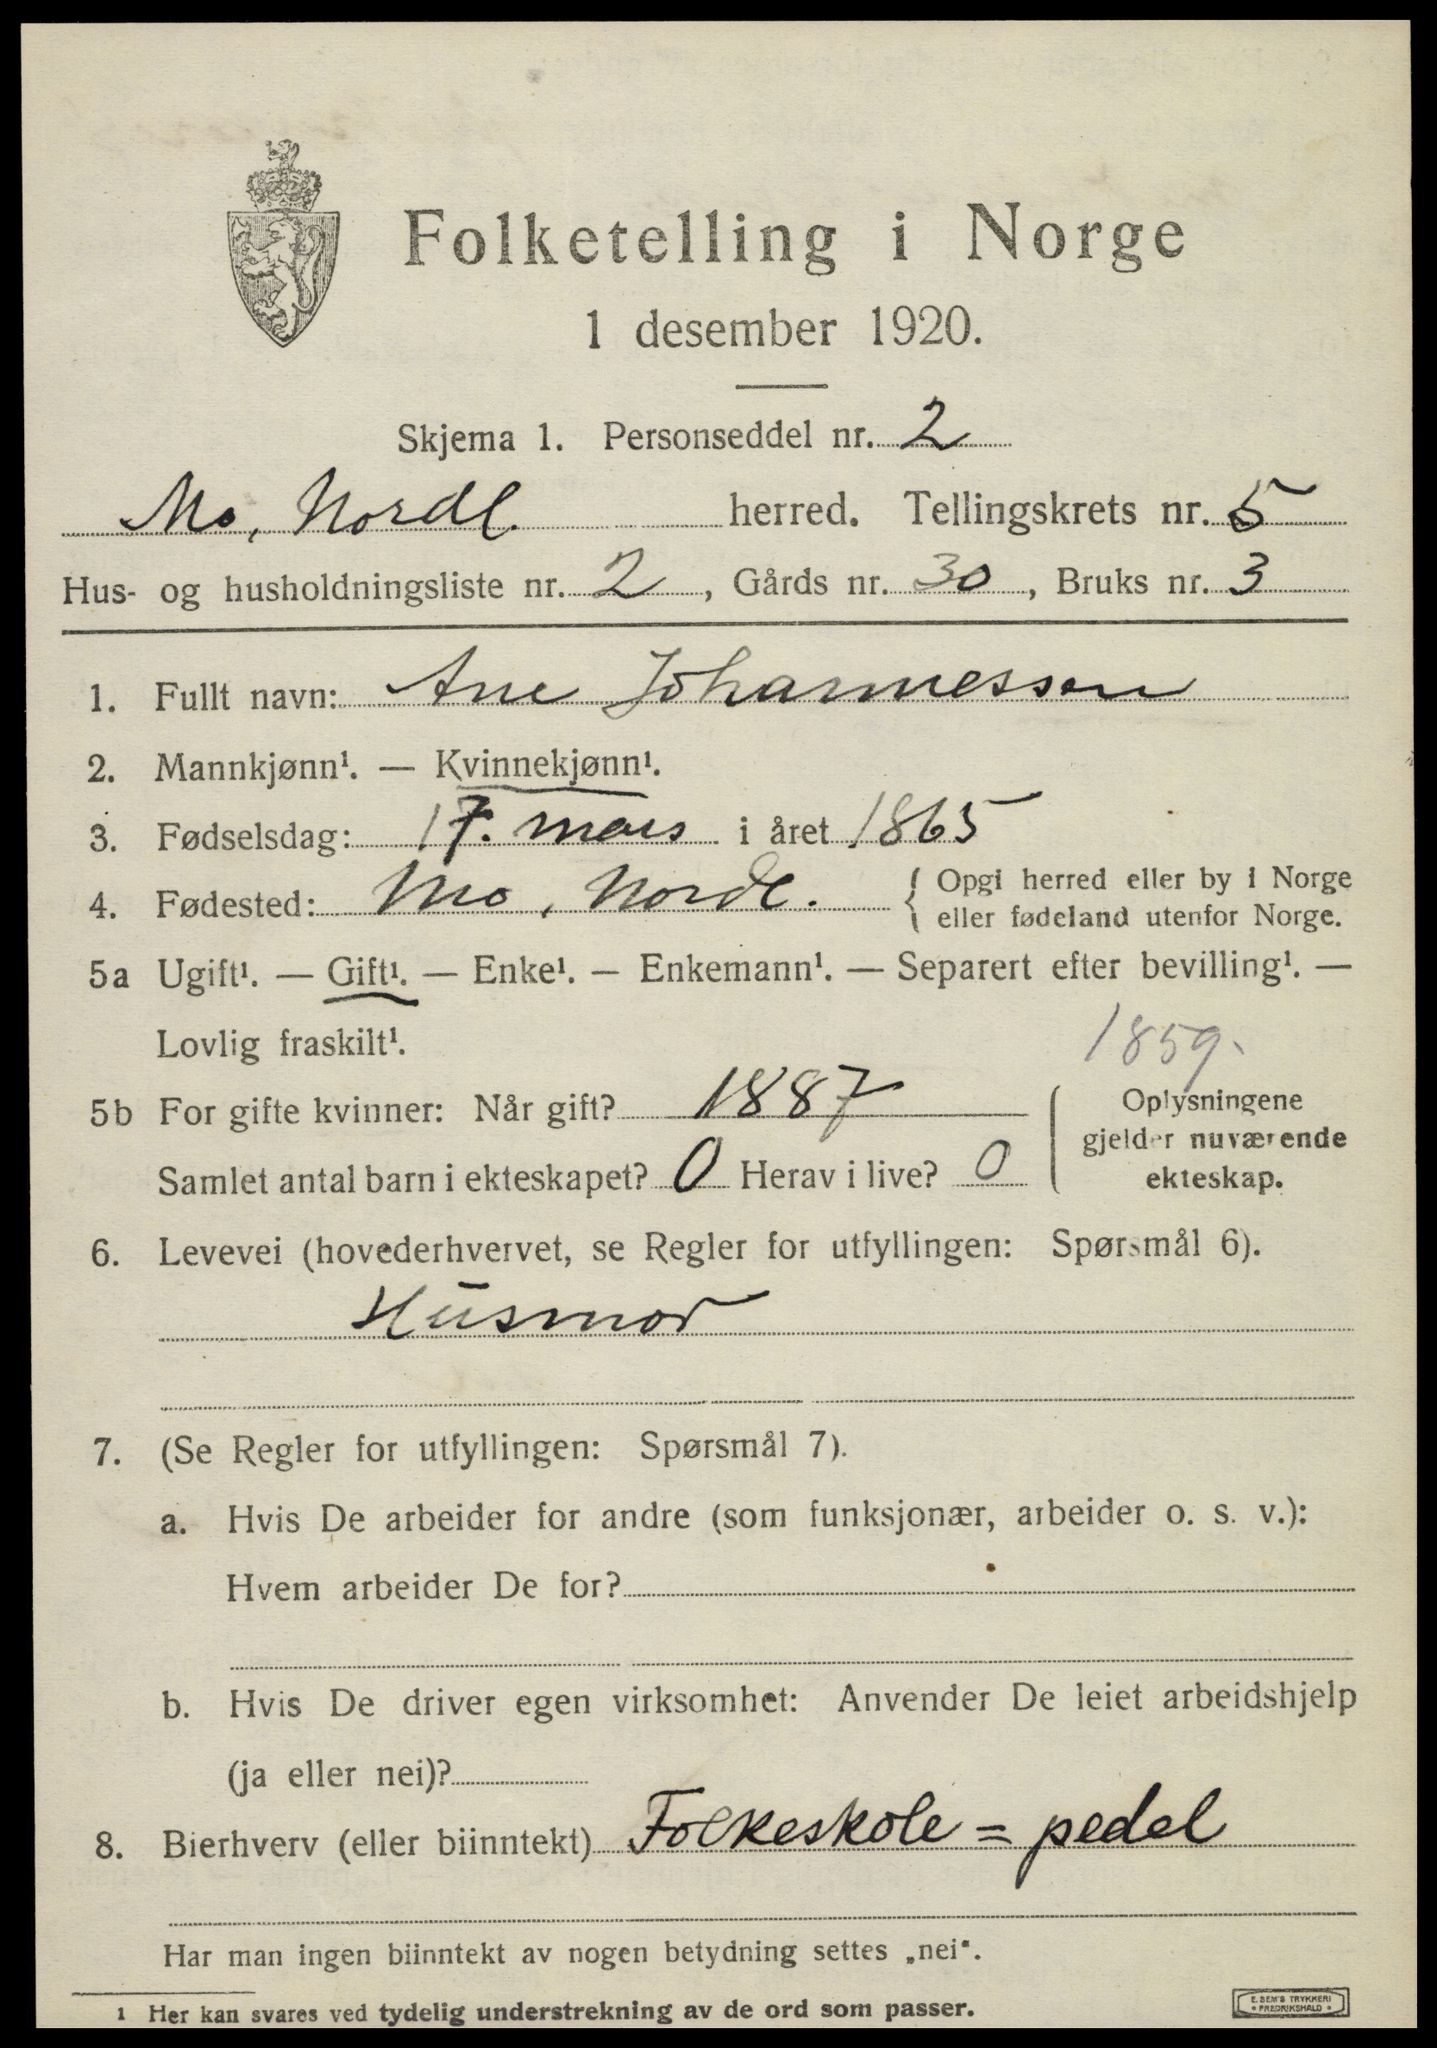 Folketelling i Norge
1 desember 1920.
Skjema 1. Personseddel nr. 2
Mo, Nordl. herred. Tellingskrets nr. 5
Hus- og husholdningsliste nr. 2, Gårds nr. 30, Bruks nr. 3
1. Fullt navn: Ane Johannessen
2. Mannkjønn¹. — Kvinnekjønn¹.
3. Fødselsdag: 17. mars i året 1865
4. Fødested: Mo, Nordl. { Opgi herred eller by i Norge
eller fødeland utenfor Norge.
5a Ugift¹. — Gift¹. — Enke¹. — Enkemann¹. — Separert efter bevilling¹. —
Lovlig fraskilt¹.
1859.
5b For gifte kvinner: Når gift? 1887
Samlet antal barn i ekteskapet? 0 Herav i live? 0
Oplysningene
gjelder nuværende
ekteskap.
6. Levevei (hovederhvervet, se Regler for utfyllingen: Spørsmål 6).
Husmor
7. (Se Regler for utfyllingen: Spørsmål 7).
a. Hvis De arbeider for andre (som funksjonær, arbeider o. s. v.):
Hvem arbeider De for?
b. Hvis De driver egen virksomhet: Anvender De leiet arbeidshjelp
(ja eller nei)?
8. Bierhverv (eller biinntekt) Folkeskole = pedel
Har man ingen biinntekt av nogen betydning settes „nei“.
1 Her kan svares ved tydelig understrekning av de ord som passer.
E. SEM'S TRYKKERI
• FREDRIKSHALD •